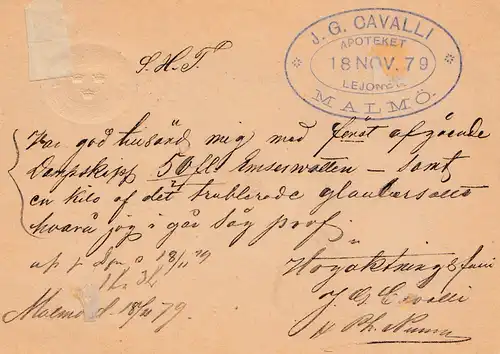 J. G. CAVALLI
APOTEKET
18 NOV. 79
LEJONET
MALMÖ.
S. H. T.
Var god tillsänd mig med först afgående
Dampskepp 50 fl. Emservatten — samt
en kilo af det trublerade glaubersalt
hvarå jag i går såg prof.
18/11 79
Högaktningsfullt
J. G. Cavalli
Malmö d. 18/11 79.